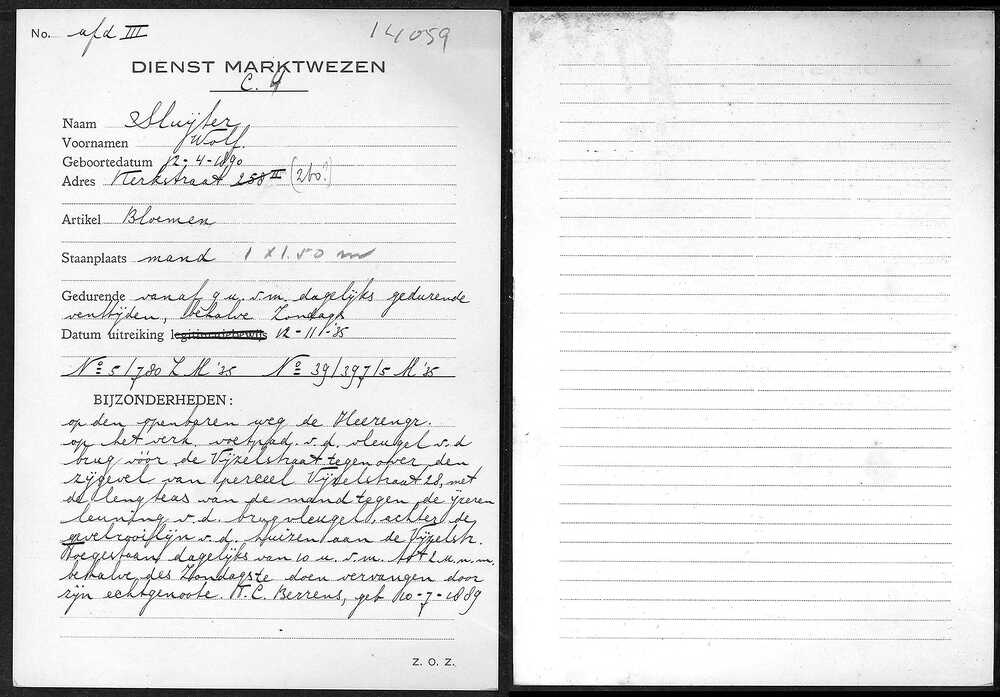 No. afd III 14059
DIENST MARKTWEZEN
C. 4
Naam Sluijter
Voornamen Wolf.
Geboortedatum 12-4-1890
Adres Kerkstraat 258 II (260?)
Artikel Bloemen
Staanplaats mand 1 x 1.50 m
Gedurende vanaf 9 u. v.m. dagelijks gedurende
ventijden, behalve Zondags
Datum uitreiking legitimatiebewijs 12-III-'35
No 5/780 L M '35 No 39/397/5 M '35
BIJZONDERHEDEN:
op den openbaren weg de Heerengr.
op het verh. voetpad. v.d. vleugel v.d
brug vóór de Vijzelstraat tegenover den
zijgevel van perceel Vijzelstraat 28, met
de lengteas van de mand tegen de ijzeren
leuning v.d. brugvleugel, achter de
gevelrooilijn v.d. huizen aan de Vijzelstr.
Toegestaan dagelijks van 10 u. v.m. tot 2 u. n.m.
behalve des Zondags te doen vervangen door
zijn echtgenoote. K.C. Berrens, geb 10-7-1889
Z. O. Z.